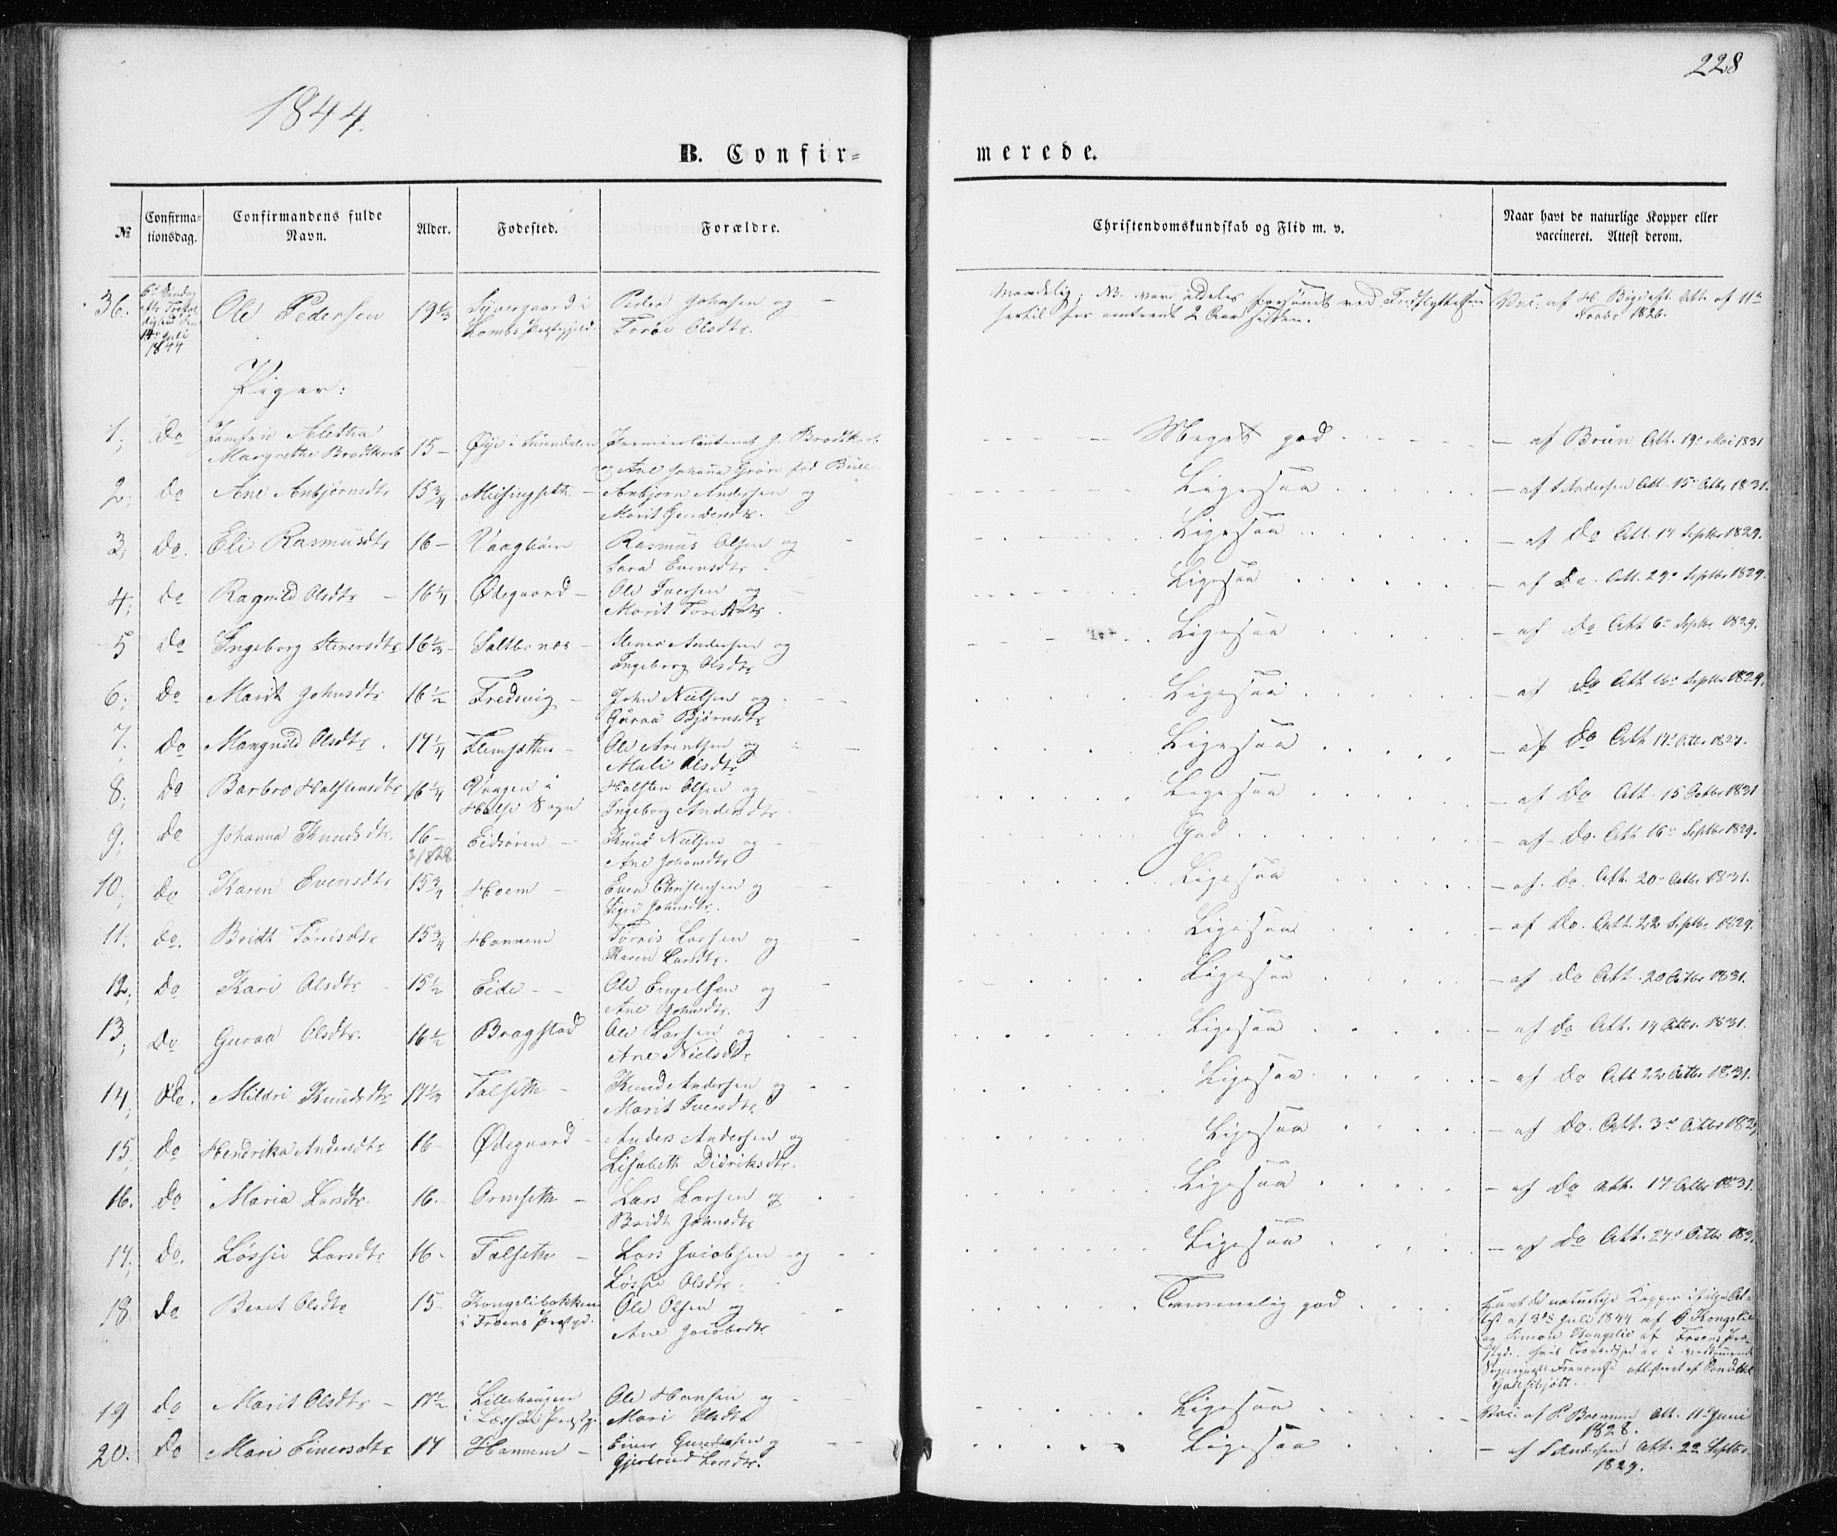 228
1844.
B. Confir-
merede.
№
Confirma-
tionsdag.
Confirmandens fulde
Navn.
Alder.
Fødested.
Forældre.
Christendomskundskab og Flid m. v.
Naar havt de naturlige Kopper eller
vaccineret. Attest derom.
36. 1844 Ole Pedersen 19 1/3 Peder Johnsen og
Toroe Olsdtr.
Piger:
1, Do Jomfrue Aletha
Margrethe Brodtkorb 15 - Øye i Surendalen J. Brodtkorb
og Ane Johanna Grøn fød Bull Meget god - af Brun Att. 19 Mai 1831
2, do Ane Anbjørnsdtr 15 3/4 Meisingseth - Anbjørn Andersen og
Marit Gundersdtr. Ligesaa - af S Andersen Att. 15 Octbr 1831.
3, do. Eli Rasmusdtr 16 - Vaagbøen Rasmus Olsen og
Sara Evensdtr. Ligesaa - af Do Att. 17 Septbr 1829.
4, do Ragnild Olsdtr - 16 1/4 Ødegaard - Ole Iversen og
Marit Toresdtr Ligesaa - af Do Att. 29 Septbr 1829.
5 do Ingeborg Steversdtr 16 1/3 - Saltbones - Andersen og
Ingeborg Olsdtr Ligesaa - af Do Att 6 Septbr 1829.
6, do Marit Johnsdtr 16 1/2 Fredsvig - John Nielsen og
Guroe Bjørnsdtr Ligesaa - af Do Att 16 Septbr 1829.
7. do Magnild Olsdtr. 17 1/4 Flemsetter - Ole Arentsen og
Mali Olsdtr Ligesaa - af Do Att 17 Octbr 1827.
8, do Barbro Halstensdtr 16 1/4 Vaagen i
Halse Sogn Halsten Olsen og
Ingeborg Andersdtr Ligesaa - af Do Att. 15 Octbr 1831
9, do Johanna Knudsdtr. 16 - Eidsøren - Knud Nielsen og
Ane Johansdtr God - af Do. Att 16 Septbr 1829.
10, do Karen Evensdtr 15 3/4 Hoem - Even Christensen og
Sigri Johnsdtr. Ligesaa - af do. Att. 20 Octbr 1831.
11. do. Bridt Tørrisdtr 15 3/4 Hannem Tørris Larsen og
Karen Larsdtr. Ligesaa - af Do. Att 22 Septbr 1829.
12, do Kari Olsdtr 15 1/2 Eide - Ole Engelsen og
Ane Johnsdtr. Ligesaa - af Do Att. 20 Octbr 1831.
13, Do Guroe Olsdtr. 16 1/2 Bragstad Ole Larsen og
Ane Nielsdtr Ligesaa - af Do Att. 14 Octbr. 1831.
14, do. Mildri Knudsdtr 17 1/3 Talseth - Knud Andersen og
Marit Iversdtr Ligesaa - af Do Att 22 Octbr 1831.
15, do Hendrika Andersdtr 16 - Ødegaard - Anders Andersen og
Lisabeth Didriksdtr. Ligesaa - af Do. Att. 3 Octbr 1829
16. do Maria Larsdtr 16. - Ormseth - Lars Larsen og
Bridt Johnsdtr Ligesaa - af Do Att. 17 Octbr 1831.
17, do. Løssie Larsdtr 16 - Talseth - Lars Jacobsen og
Løssie Olsdtr. Ligesaa - af Do Att. 27 Octbr 183
18, do Berit Olsdtr 15 - Kongslibakken
i Froens Prstgd. Ole Olsen og
Ane Jacobsdtr Temmelig god Havt de naturlige Kopper ifølge At-
test af 3 Juli 1844 af Kongslie
og Simon Kongslie af Froens Pre-
stgd.
attesteret af
19 do Marit Olsdtr - 17 1/2 Lillehaugen
i Lessøe Prstgd. Ole Hansen og
Mari Olsdtr Ligesaa Vac. af P. Att. 11 Juni
1828.
20. do Mari Einersdtr 17 Hannem - Einer Gundersen og
Gjertrud Larsdtr. Ligesaa - af S Andersen Att. 22 Septbr
1829.